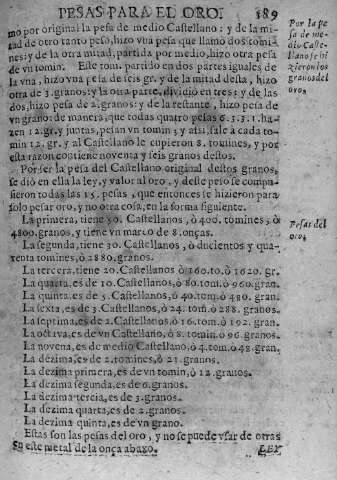 PESAS PARA EL ORO. 189
mo por original la pesa de medio Castellano: y de la mi-
tad de otro tanto peso, hizo vna pesa que llamo dos tomi-
nes: y de la otra mitad, partida por medio, hizo otra pesa
de vn tomin. Este tom. partido en dos partes iguales de
la vna, hizo vna pesa de seis gr. y de la mitad desta, hizo
otra de 3. granos: y la otra parte, dividio en tres: y de las
dos, hizo pesa de 2. granos: y de la restante, hizo pesa de
vn grano: de manera, que todas quatro pesas 6. 3. 2. 1. ha-
zen 12. gr. y juntas, pesan vn tomin; y assi, sale a cada to-
min 12. gr. y al Castellano le cupieron 8. tomines, y por
esta razon contiene noventa y seis granos destos.
Por ser la pesa del Castellano original destos granos,
se dio en ella la ley, y valor al oro, y deste peso se compu-
sieron todas las 15. pesas, que entonces se hizieron para
solo pesar oro, y no otra cosa, en la forma siguiente.
La primera, tiene 50. Castellanos, ò 400. tomines, ò
4800. granos, y tiene vn marco de 8. onças.
La segunda, tiene 30. Castellanos, ò ducientos y qua-
renta tomines, ò 2880. granos.
La tercera, tiene 20. Castellanos, ò 160. to. ò 1620. gr.
La quarta, es de 10. Castellanos, ò 80. tom. ò 960. gran.
La quinta, es de 5. Castellanos, ò 40. tom. ò 480. gran.
La sexta, es de 3. Castellanos, ò 24. tom. ò 288. granos.
La septima, es de 2. Castellanos, ò 16. tom. ò 192. gran.
La octava, es de vn Castellano, ò 8. tomin. ò 96. granos.
La novena, es de medio Castellano, ò 4. tom. ò 48. gran.
La dezima, es de 2. tomines, ò 21. granos.
La dezima primera, es de vn tomin, ò 12. granos.
La dezima segunda, es de 6. granos.
La dezima tercia, es de 3. granos.
La dezima quarta, es de 2. granos.
La dezima quinta, es de vn grano.
Estas son las pesas del oro, y no se puede vsar de otras
en este metal de la onça abaxo. LEY.
Por la pe
sa de me-
dio Caste-
llano se hi
zieron los
granos del
oro.
Pesas del
oro.